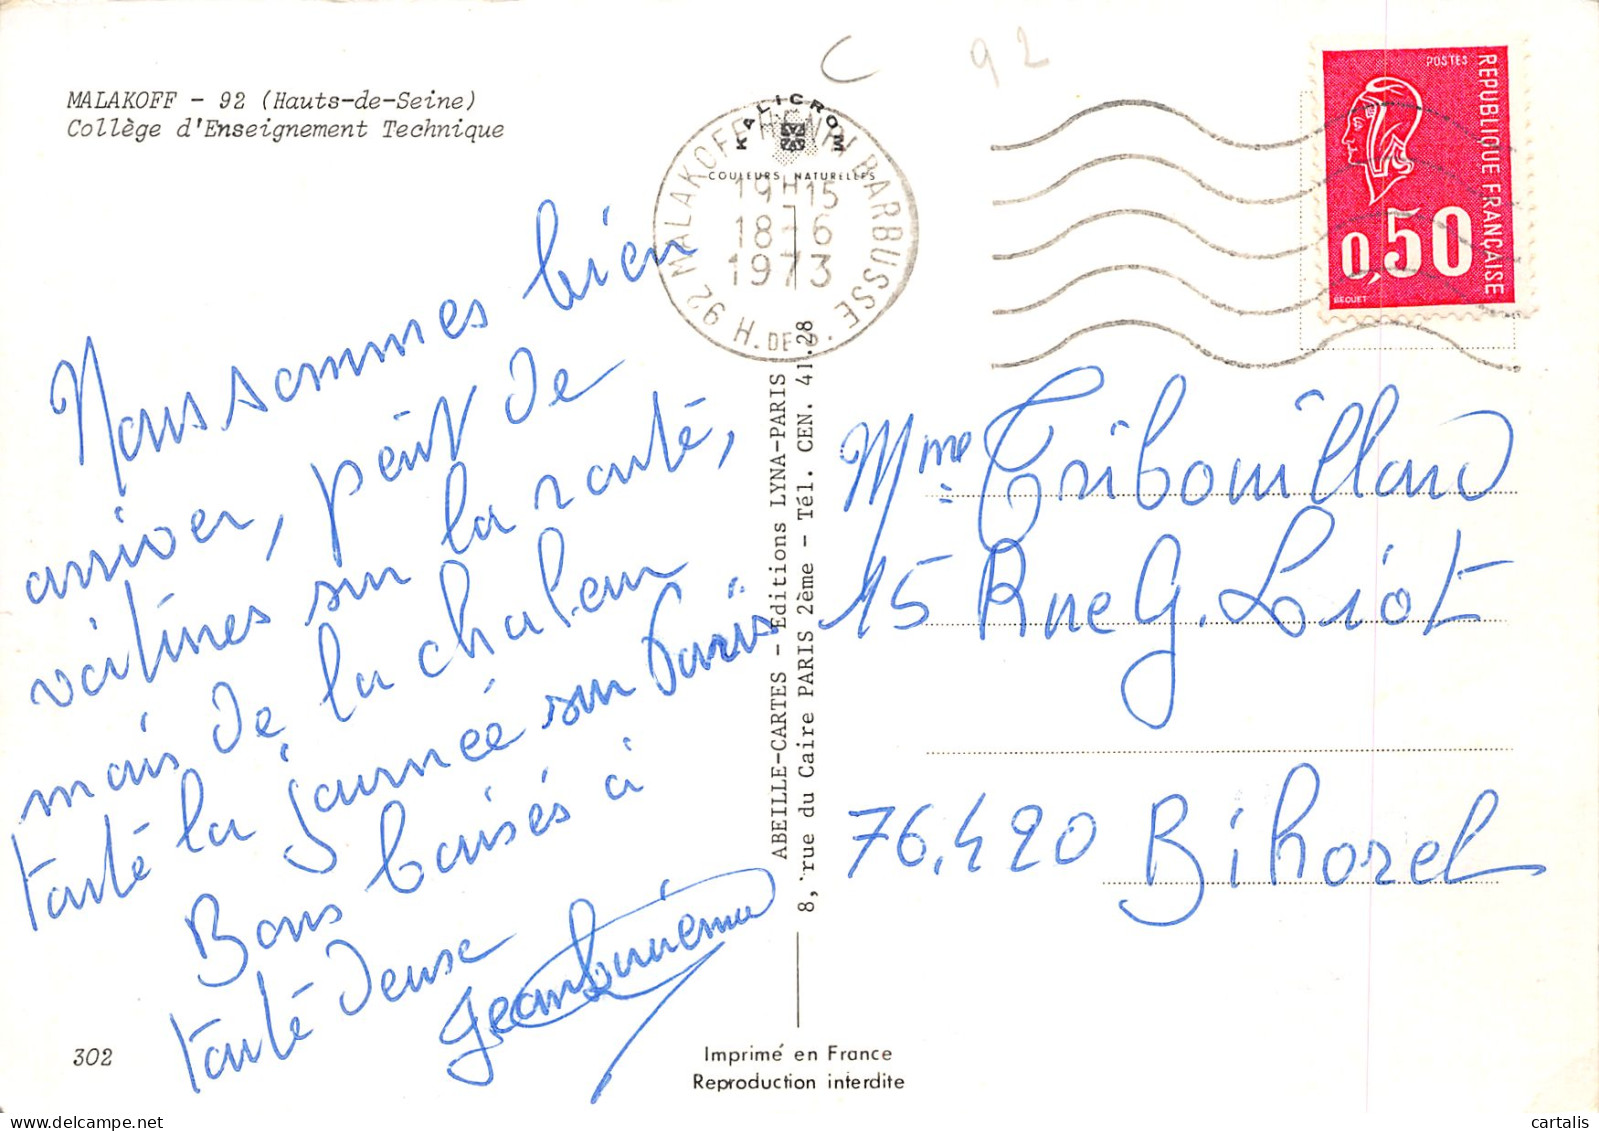 MALAKOFF - 92 (Hauts-de-Seine)
Collège d'Enseignement Technique
C 92
KALICROM
COULEURS NATURELLES
92 MALAKOFF HENRI BARBUSSE
19H15
18-6
1973
H. DE S.
POSTES
REPUBLIQUE FRANÇAISE
0,50
BEQUET
Nous sommes bien
arriver, peut de
voitures sur la routé,
mais de la chaleur
touté la journeé sur Paris
Bons baisés à
touté deuse
Mme Tribouillard
15 Rue G. Liot
76.420 Bihorel
ABEILLE-CARTES - Editions LYNA-PARIS
8, rue du Caire PARIS 2ème - Tél. CEN. 41.28
302
Imprimé en France
Reproduction interdite
cartalis